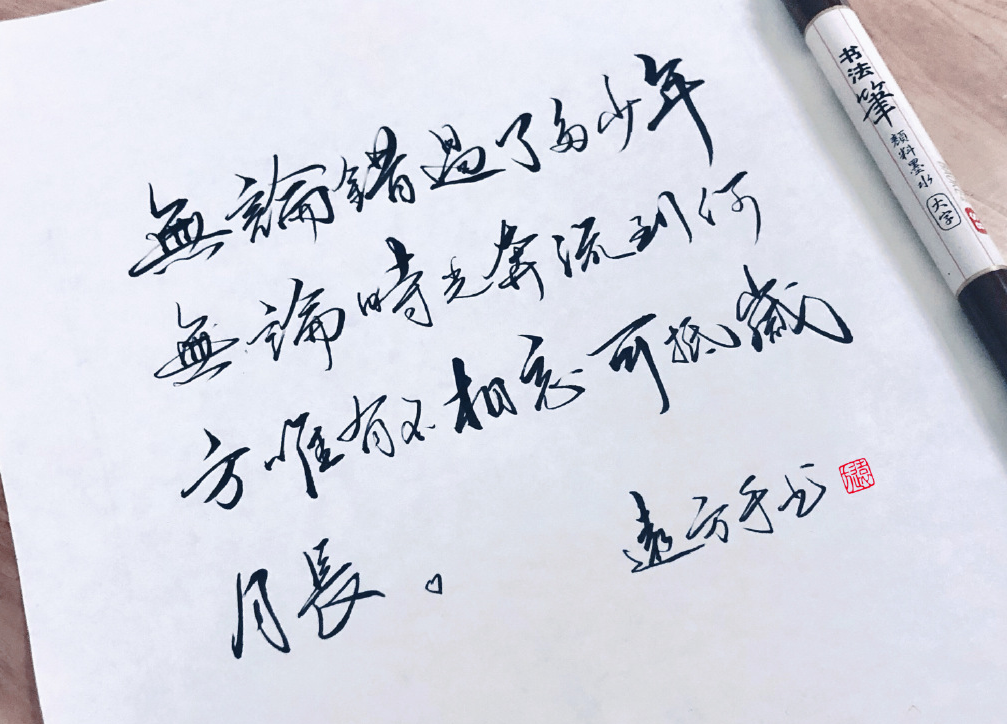 無論錯過了多少年
無論時光奔流到何
方唯有不相忘可抵歲
月長。
遠方手书
遠方
书法筆
顏料墨水
大字